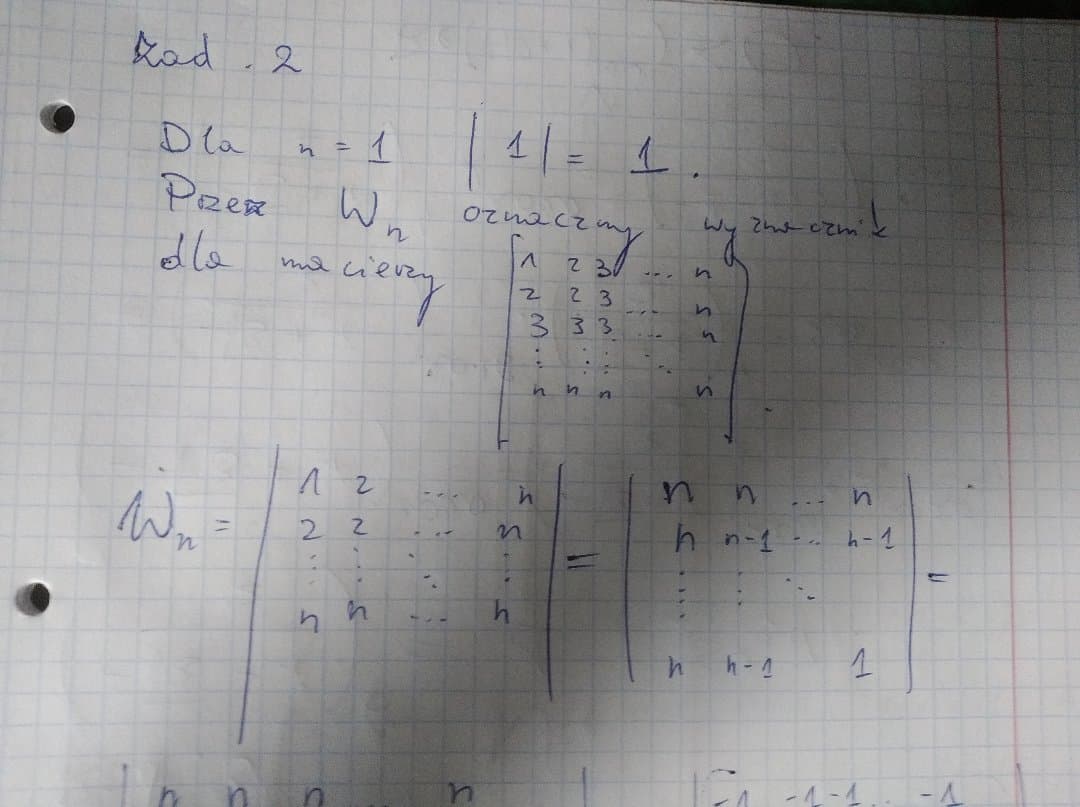 Zad. 2
Dla n = 1 | 1 | = 1.
Przez Wn oznaczmy wyznacznik
dla macierzy [ 1 2 3 ... n
2 2 3 ... n
3 3 3 ... n
⋮ ⋮ ⋮ ⋱
n n n n ] .
Wn = | 1 2 ... n | = | n n ... n | =
2 2 ... n n n-1 ... n-1
⋮ ⋮ ⋱ ⋮ ⋮ ⋮ ⋱
n n ... n n n-1 1
| n n n ... n | | -1 -1 -1 ... -1 |